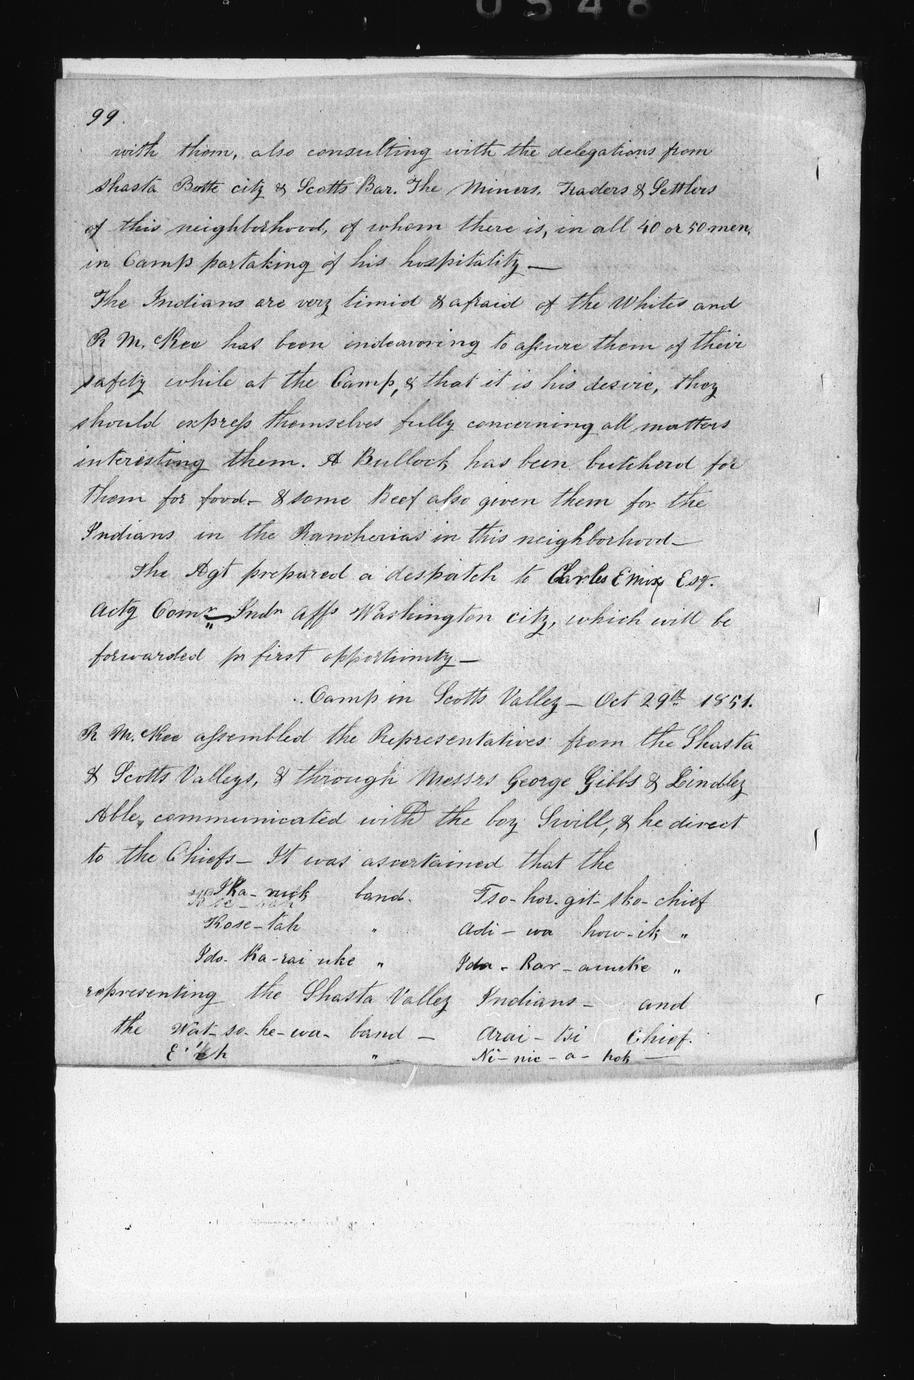 0548
99.
with them, also consulting with the delegations from
Shasta Butte city & Scotts Bar. The Miners, Traders & Settlers
of this neighborhood, of whom there is, in all 40 or 50 men,
in Camp partaking of his hospitality —
The Indians are very timid & afraid of the Whites and
R M. Kee has been endeavoring to assure them of their
safety while at the Camp, & that it is his desire, they
should express themselves fully concerning all matters
interesting them. A Bullock has been butcherd for
them for food - & some Beef also given them for the
Indians in the Rancherias in this neighborhood —
The Agt prepared a despatch to Charles E Mix Esq.
Actg Comr Indn affs Washington city, which will be
forwarded pr first opportunity —
Camp in Scotts Valley — Oct 29th 1851.
R M. Kee assembled the Representatives from the Shasta
& Scotts Valleys, & through Messrs George Gibbs & Lindley
Able, communicated with the boy Swill, & he direct
to the Chiefs — It was ascertained that the
Ika-ruck band. Tso-hor-git-sko-chief
Kose-tah " Adi-wa how-ik "
Ido-Ka-rai uke " Ida-Kar-a
representing the Shasta Valley Indians — and
the Wat-so-he-wa- band — Arai-tsi Chief.
E'-eh " Ni-nic-a-hok —